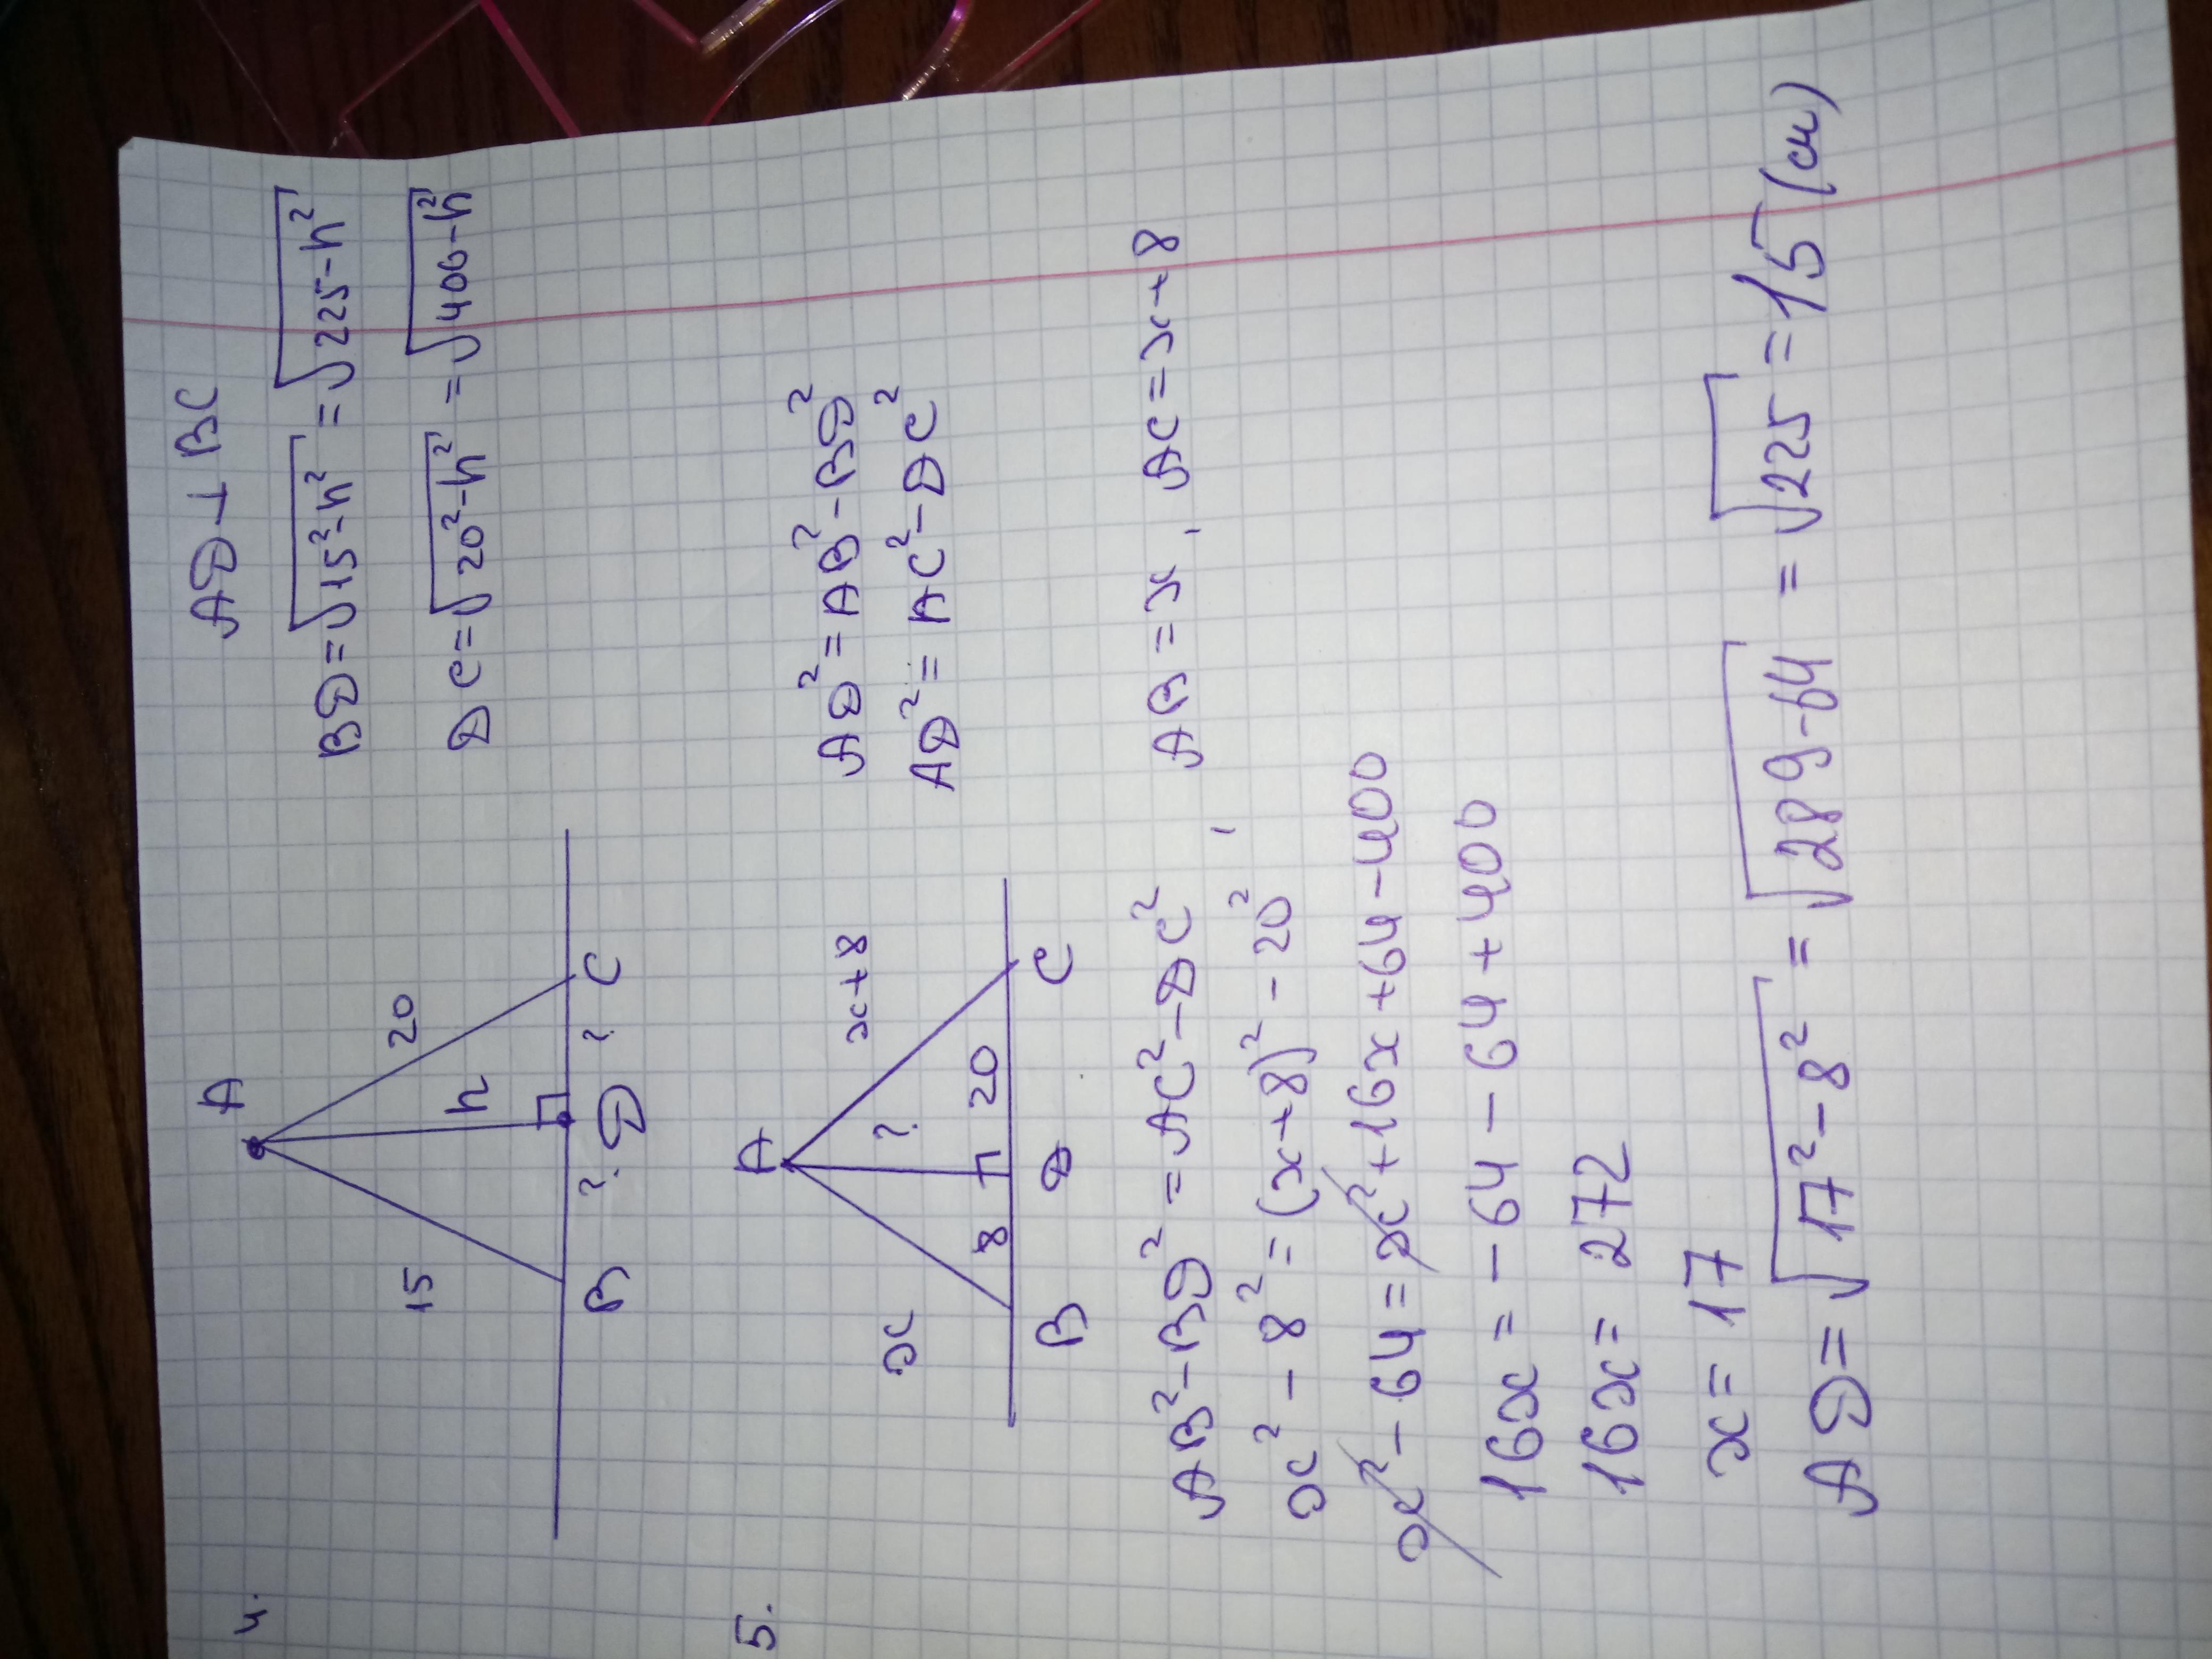 4.
A
AD ⊥ BC
15
20
h
BD = √15² - h² = √225 - h²
DC = √20² - h² = √400 - h²
B ? D ? C
5.
A
x
x+8
?
8
20
B D C
AD² = AB² - BD²
AD² = AC² - DC²
AB² - BD² = AC² - DC², AB = x, AC = x + 8
x² - 8² = (x+8)² - 20²
x² - 64 = x² + 16x + 64 - 400
16x = - 64 - 64 + 400
16x = 272
x = 17
AD = √17² - 8² = √289 - 64 = √225 = 15 (см)